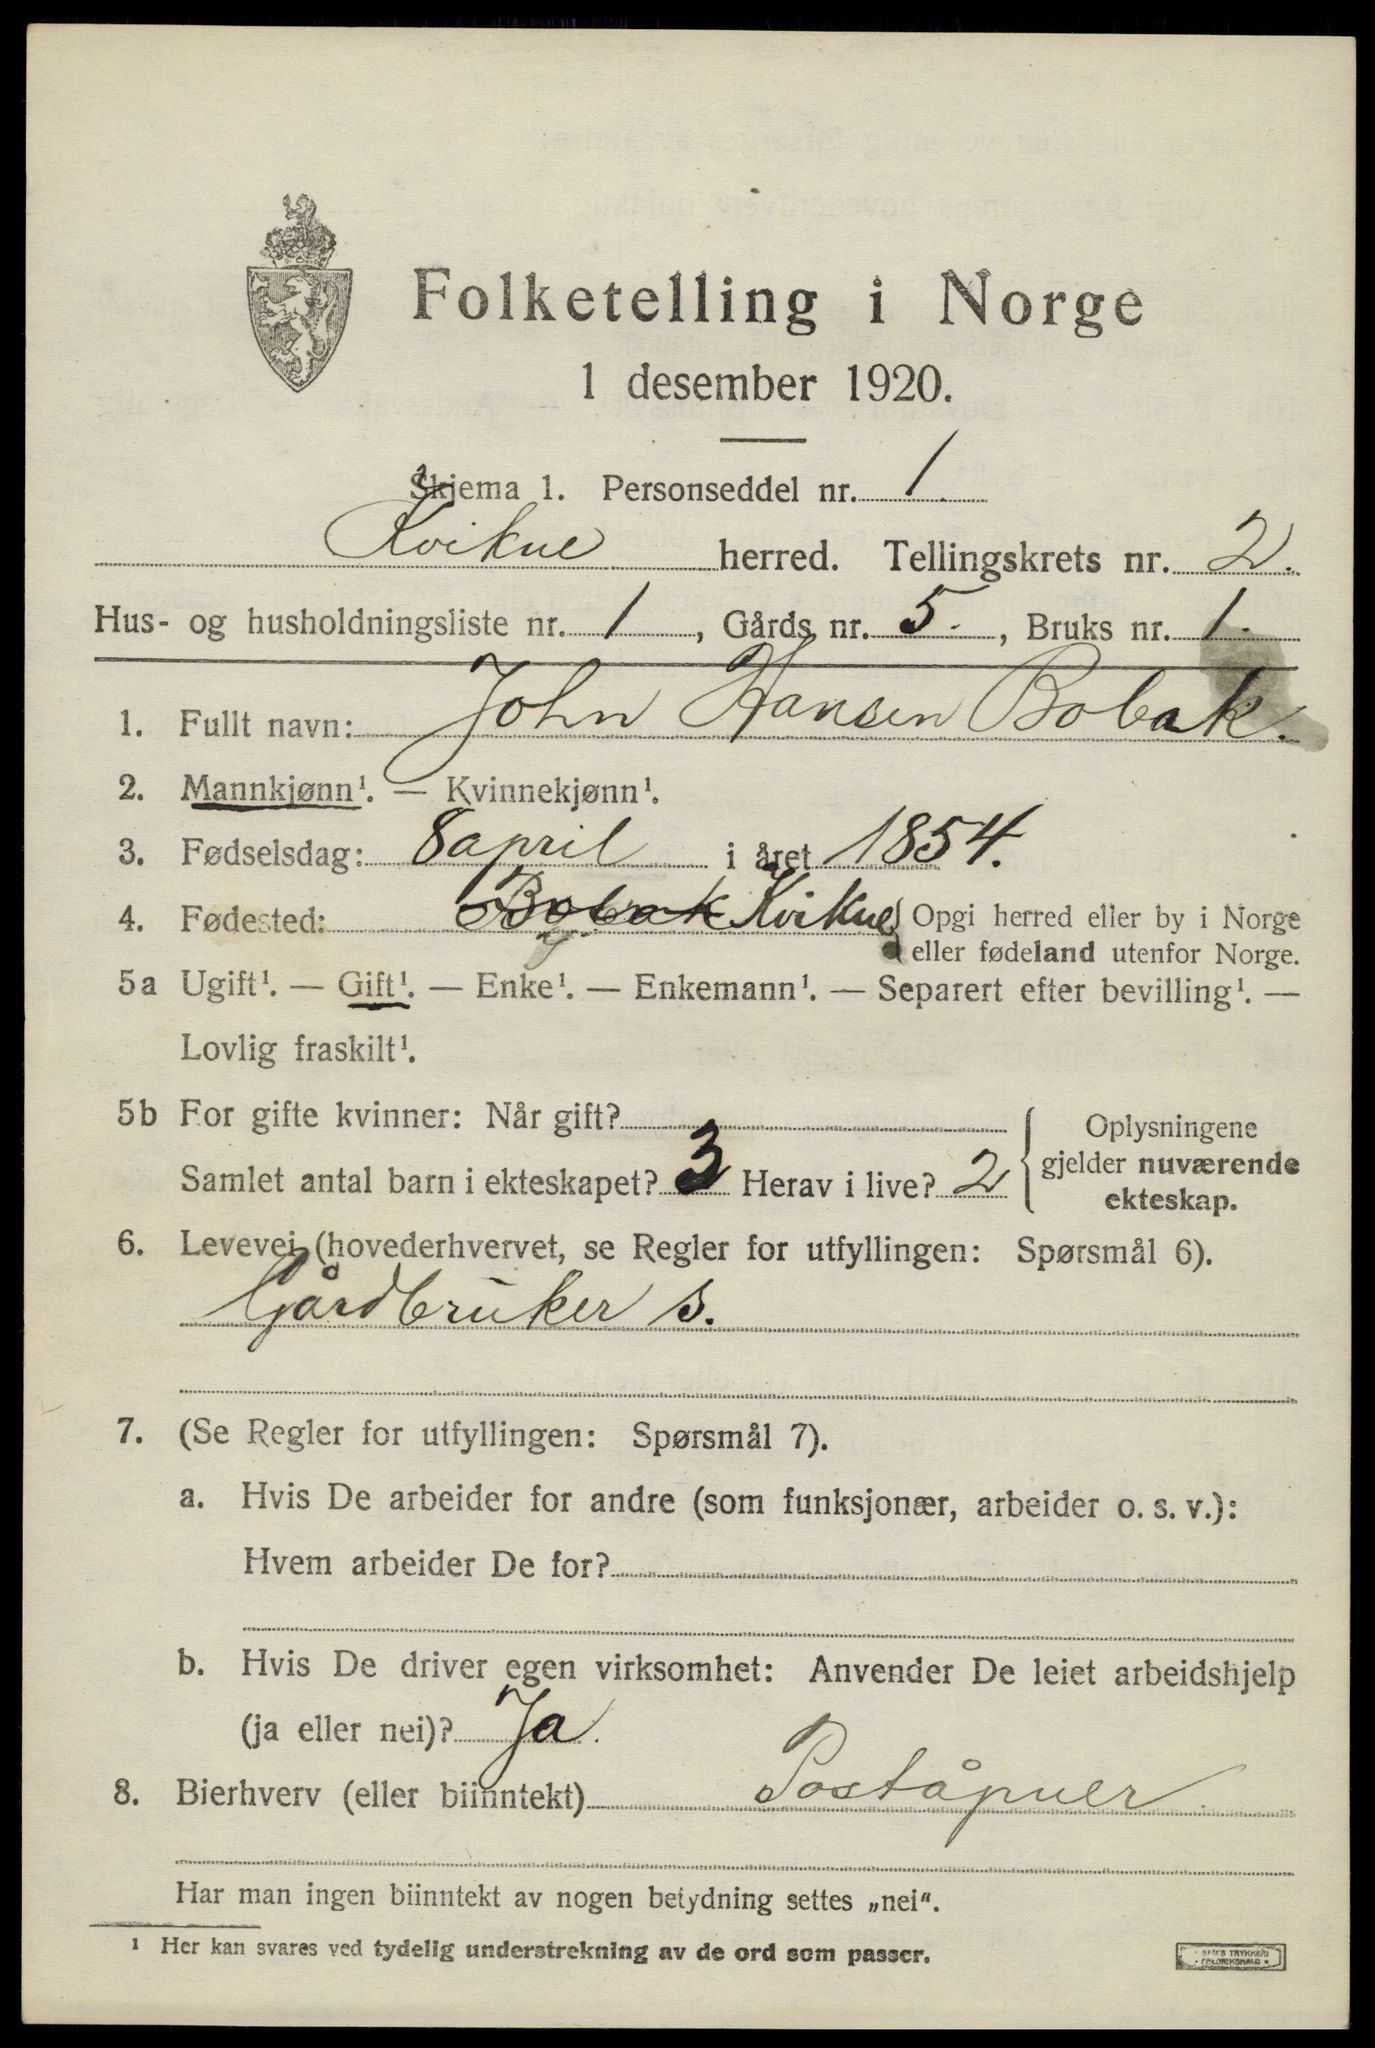 Folketelling i Norge
1 desember 1920.
Skjema 1. Personseddel nr. 1.
Kvikne herred. Tellingskrets nr. 2.
Hus- og husholdningsliste nr. 1, Gårds nr. 5., Bruks nr. 1.
1. Fullt navn: John Hansen Bobak.
2. Mannkjønn¹. — Kvinnekjønn¹.
3. Fødselsdag: 8 april i året 1854.
4. Fødested: Bobak Kvikne { Opgi herred eller by i Norge
eller fødeland utenfor Norge.
5a Ugift¹. — Gift¹. — Enke¹. — Enkemann¹. — Separert efter bevilling¹. —
Lovlig fraskilt¹.
5b For gifte kvinner: Når gift?
Samlet antal barn i ekteskapet? 3 Herav i live? 2
Oplysningene
gjelder nuværende
ekteskap.
6. Levevei (hovederhvervet, se Regler for utfyllingen: Spørsmål 6).
Gårdbruker s.
7. (Se Regler for utfyllingen: Spørsmål 7).
a. Hvis De arbeider for andre (som funksjonær, arbeider o. s. v.):
Hvem arbeider De for?
b. Hvis De driver egen virksomhet: Anvender De leiet arbeidshjelp
(ja eller nei)? Ja.
8. Bierhverv (eller biinntekt) Poståpner.
Har man ingen biinntekt av nogen betydning settes „nei“.
¹ Her kan svares ved tydelig understrekning av de ord som passer.
SEM'S TRYKKERI
FREDRIKSHALD